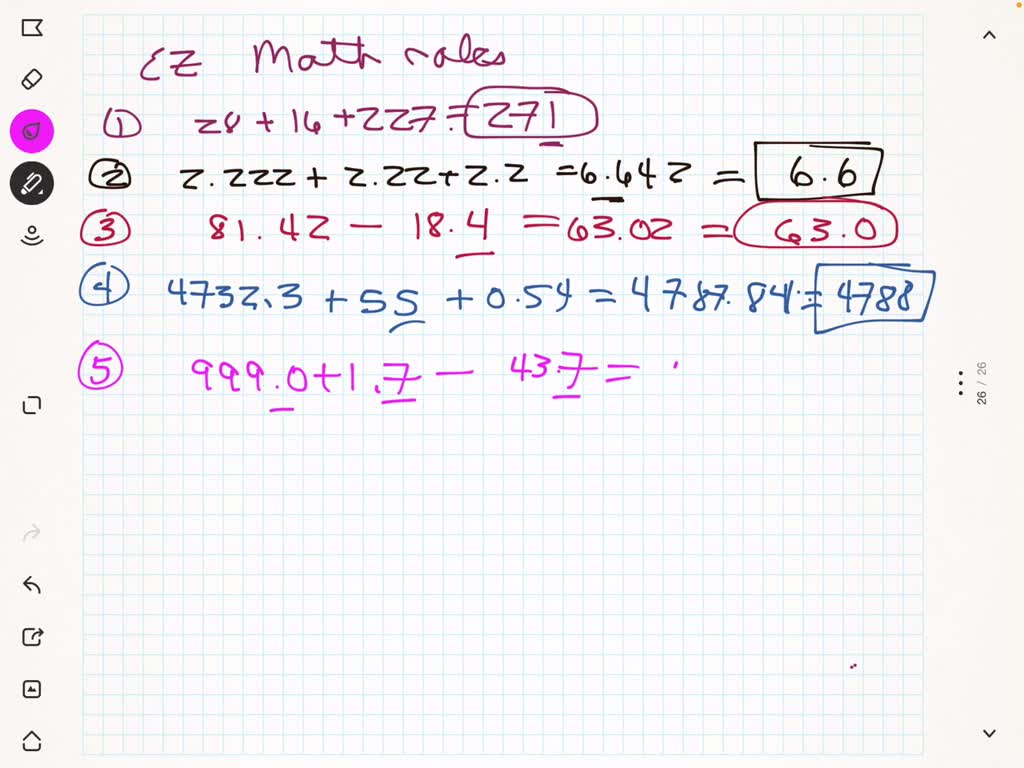 EZ Math rules
① 28 + 16 + 227 = 271
② 2.222 + 2.22 + 2.2 = 6.642 = 6.6
③ 81.42 - 18.4 = 63.02 = 63.0
④ 4732.3 + 55 + 0.54 = 4787.84 = 4788
⑤ 999.0 + 1.7 - 43.7 =
26 / 26